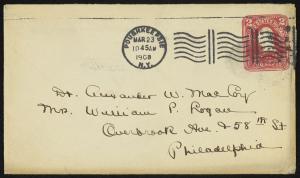 POUGHKEEPSIE
MAR 23
10 45 AM
1908
N.Y.
2 2
Dr. Alexander W. MacCoy
Mrs. William P. Logan
Overbrook Ave & 58th St
Philadelphia